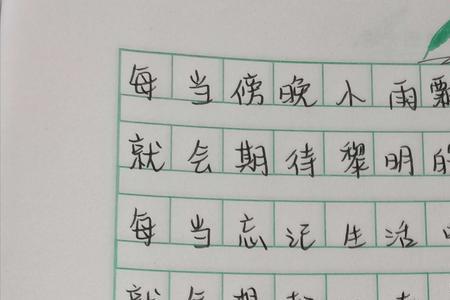 每当傍晚小雨飘
就会期待黎明的
每当忘记生活
就会想起